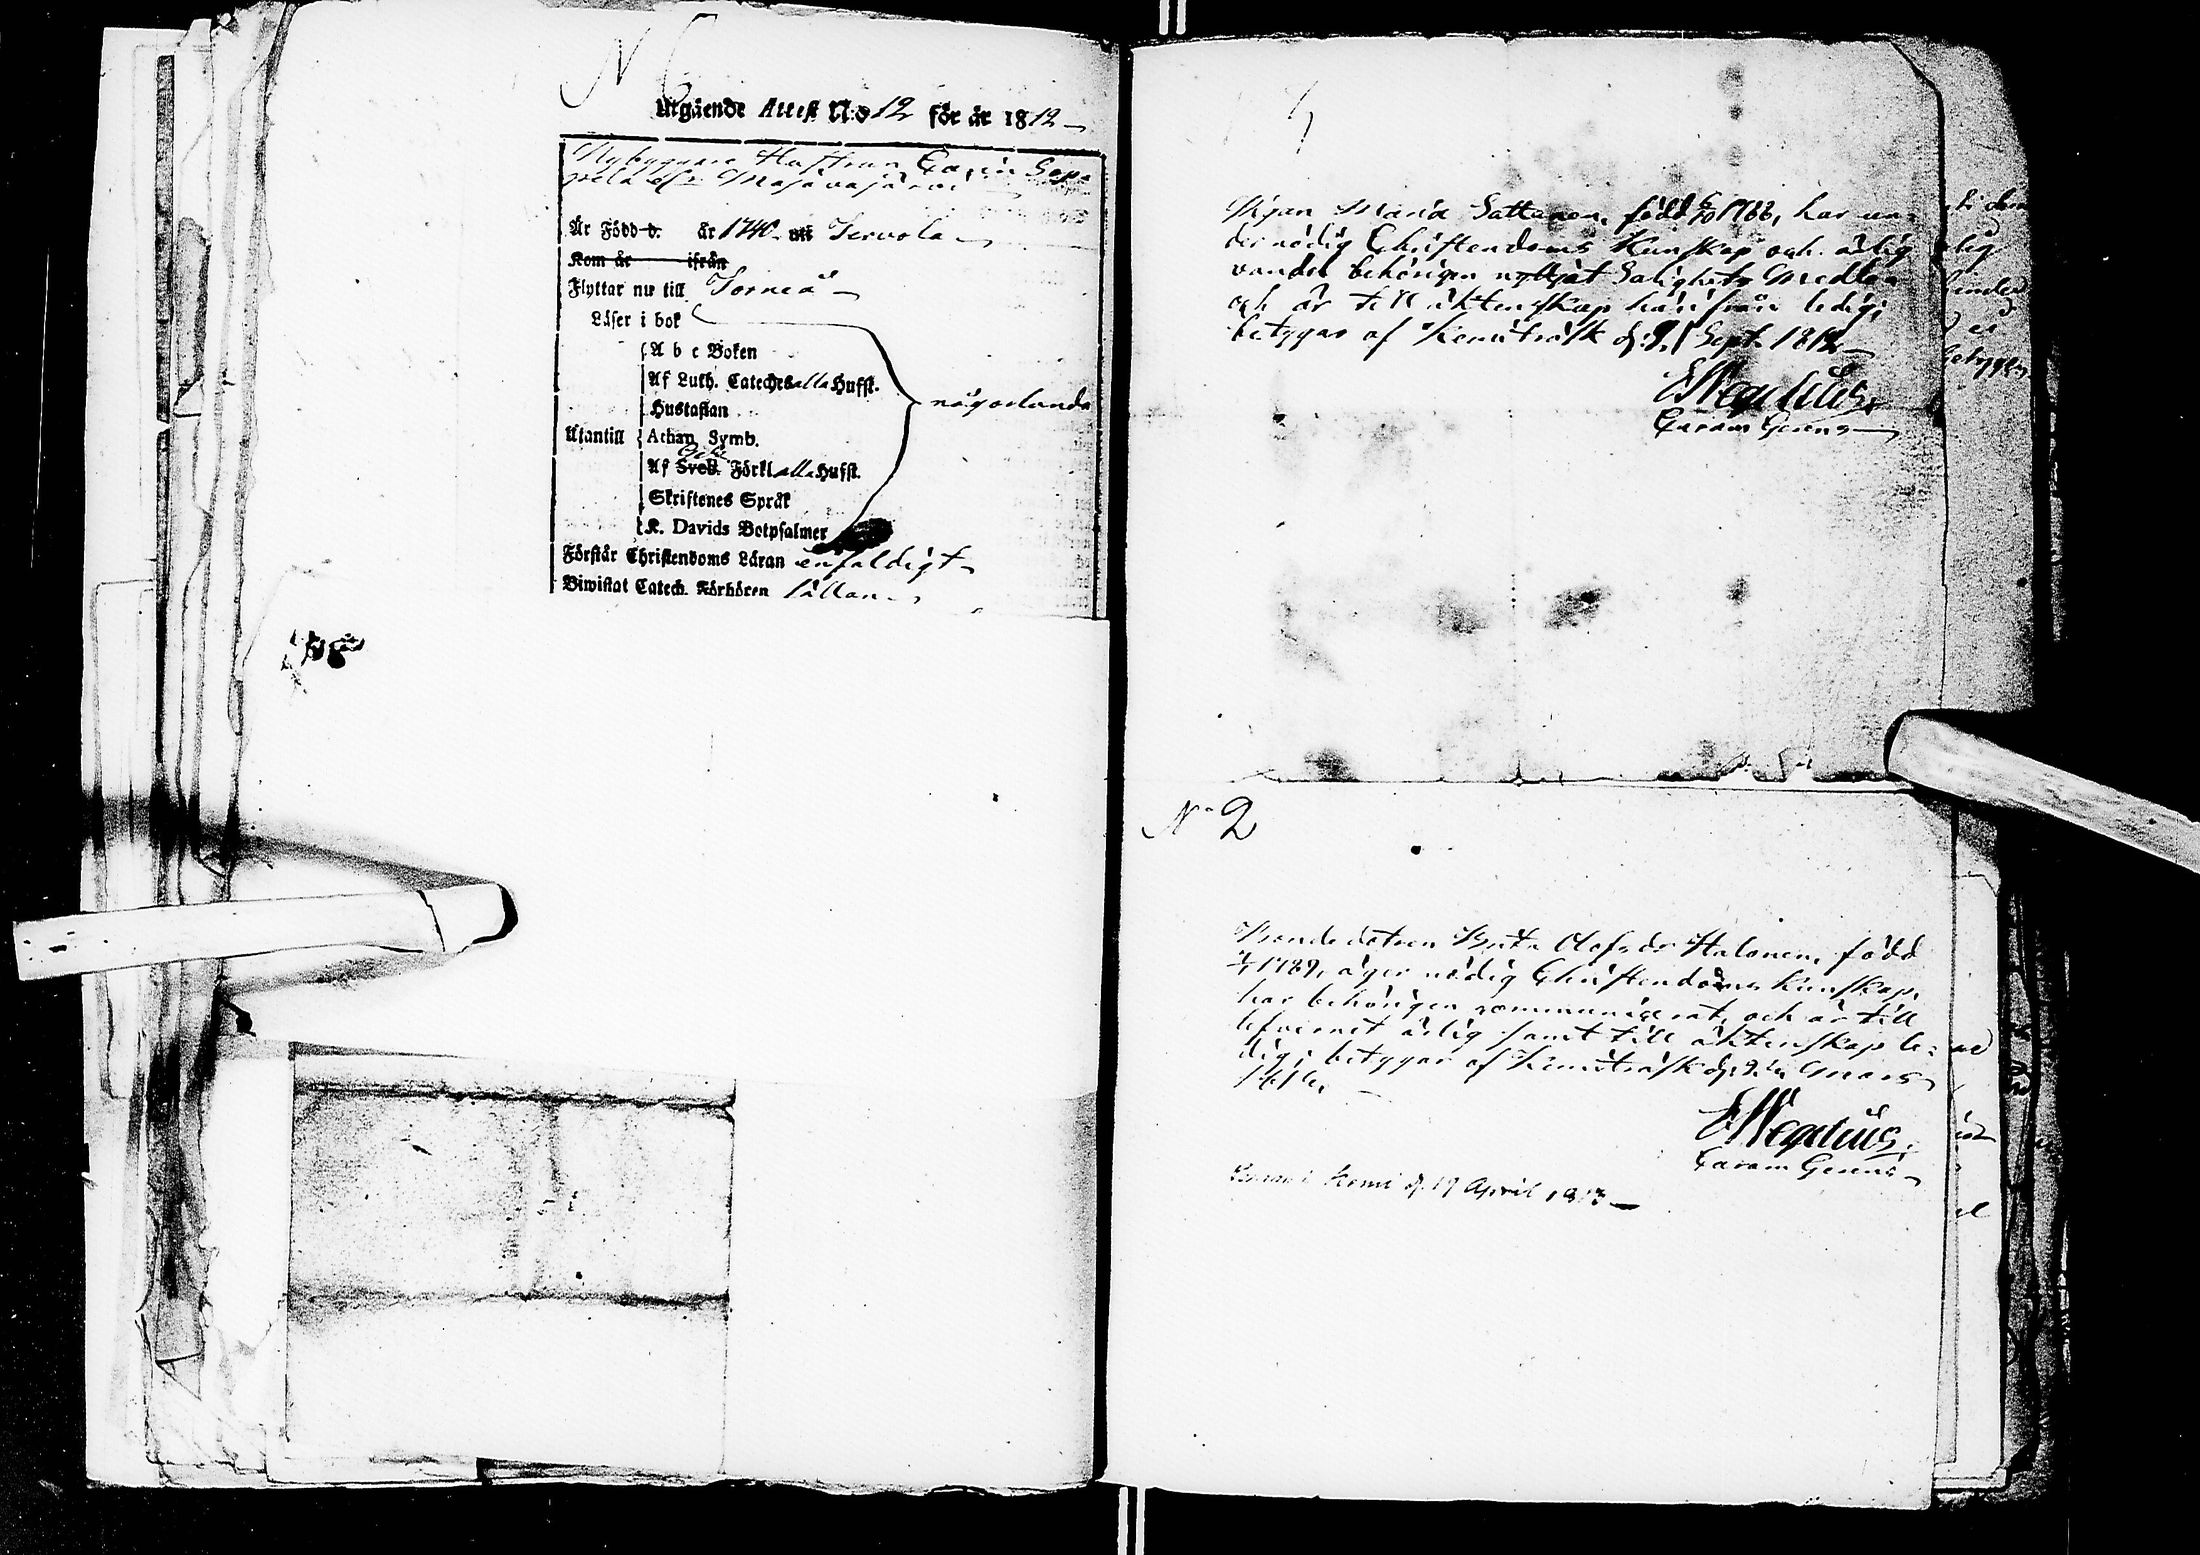 N 6
Utgående Attest N:o 12 för år 1812
Nybyggare Hustrun Carin Sep-
Majavajärvi
År Född d. år 1740 uti Tervola
Kom år ifrån
Flyttar nu till Torneå
Läser i bok
A b c Boken
Af Luth. Cateches alla Hufst.
Hustaflan
någorlunda
Utantill
Athan. Symb.
Af Sveb. Förkl alla Hufst.
Skriftenes Språk
K. Davids Botpsalmer
Förstår Christendoms Läran enfaldigt
Biwistat Catech. Förhören sällan
Pigan Maria Sattanen, född 1766, har un-
der nödig Christendoms Kunskap och ärlig
vandel behörigen nyttjat Salighets Medlen
och är till äktenskap härifrån ledig;
betygar af Kemiträsk d. 9 Sept. 1812
EWegelius
N:o 2
Bonde dotren Brita Olofsdr Halonen, född
1789, äger nödig Christendoms Kunskap,
har behörigen communicerat, och är till
lefvernet ärlig samt till äktenskap le-
dig; betygar af Kemiträsk d. Mars
EWegelius
Kemi d. 19 April 1813